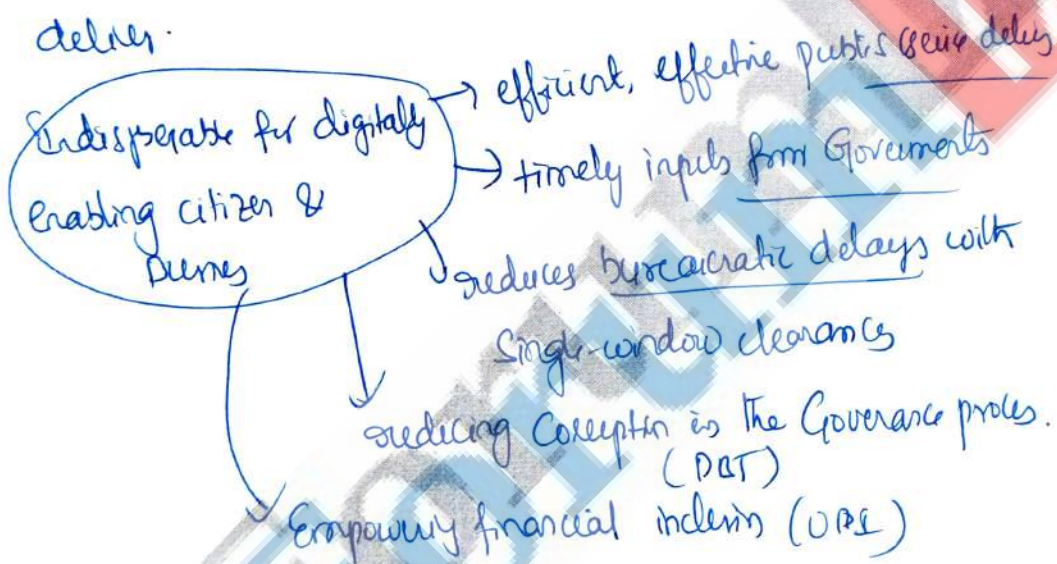 deliver.
Indispensable for digitally
enabling citizen &
→ efficient, effective public service delivery
→ timely inputs from Governments
reduces bureaucratic delays with
Single-window clearances
reducing Corruption in the Governance process.
(DBT)
Empowering financial inclusion (UPI)
forum